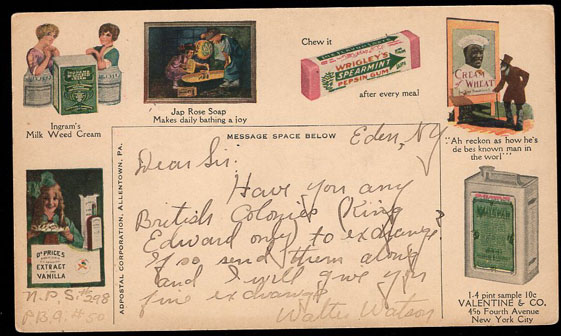 Ingram's
Milk Weed Cream
Jap Rose Soap
Makes daily bathing a joy
Chew it
WRIGLEY'S
SPEARMINT
PEPSIN GUM
after every meal
CREAM
WHEAT
"Ah reckon as how he's
de bes known man in
the worl'"
MESSAGE SPACE BELOW
Eden, N.Y.
Dear Sir:
Have you any
British Colonies King
Edward only to exchange?
If so send them along
and I will give you
fine exchange
Walter Watson
ADPOSTAL CORPORATION, ALLENTOWN, PA.
DR PRICE'S
EXTRACT
VANILLA
N.P.S. #298
P.B.A. # 50
1-4 pint sample 10c
VALENTINE & CO.
456 Fourth Avenue
New York City